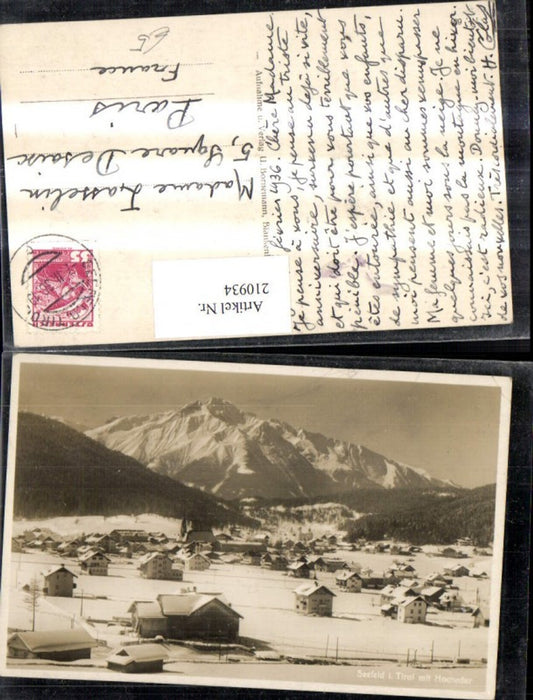 février 1936. Chère Madame
je pense à vous, je pense au triste
anniversaire, survenu déjà si vite,
et qui doit être pour vous terriblement
pénible, j'espère pourtant que vous
êtes entourée, ainsi que vos enfants,
de sympathie et que d'autres que
moi pensent aussi au cher disparu.
Ma femme et moi sommes venus passer
quelques jours sous la neige. Je ne
connaissais pas la montagne en hiver.
ici, c'est radieux. Donnez moi bientôt
de vos nouvelles. Très cordialement. H.
Aufnahme u. Verlag
Madame Gasselin
5, Square Desaix
Paris
France
35
Artikel Nr.
210934
Seefeld i. Tirol mit Hocheder